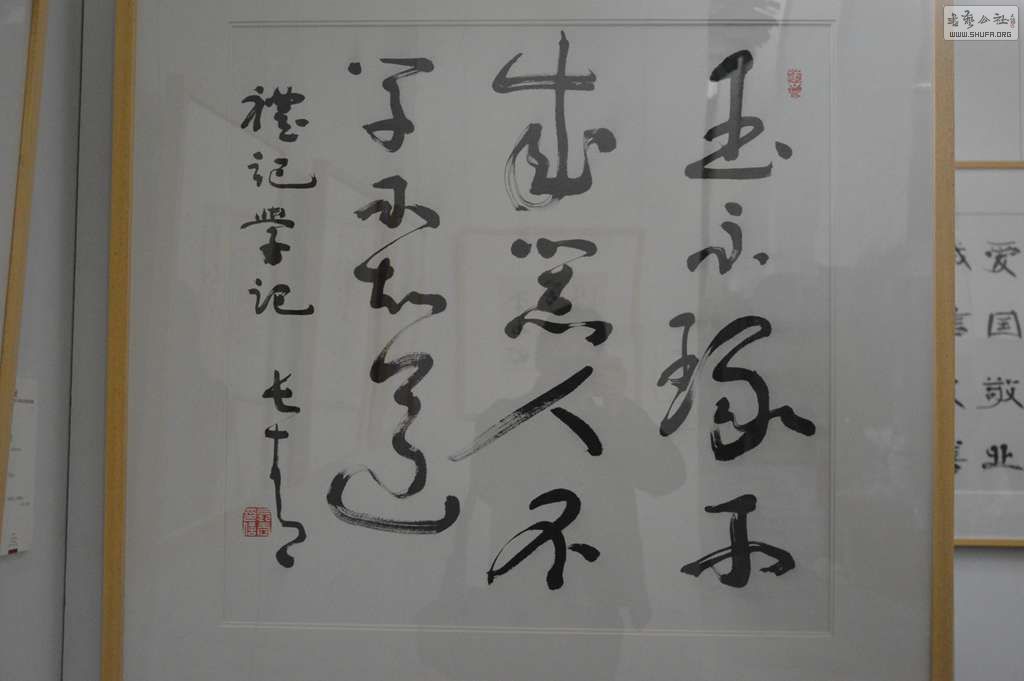 玉不琢不
成器人不
学不知道
禮记学记
爱国敬业
书艺公社
WWW.SHUFA.ORG